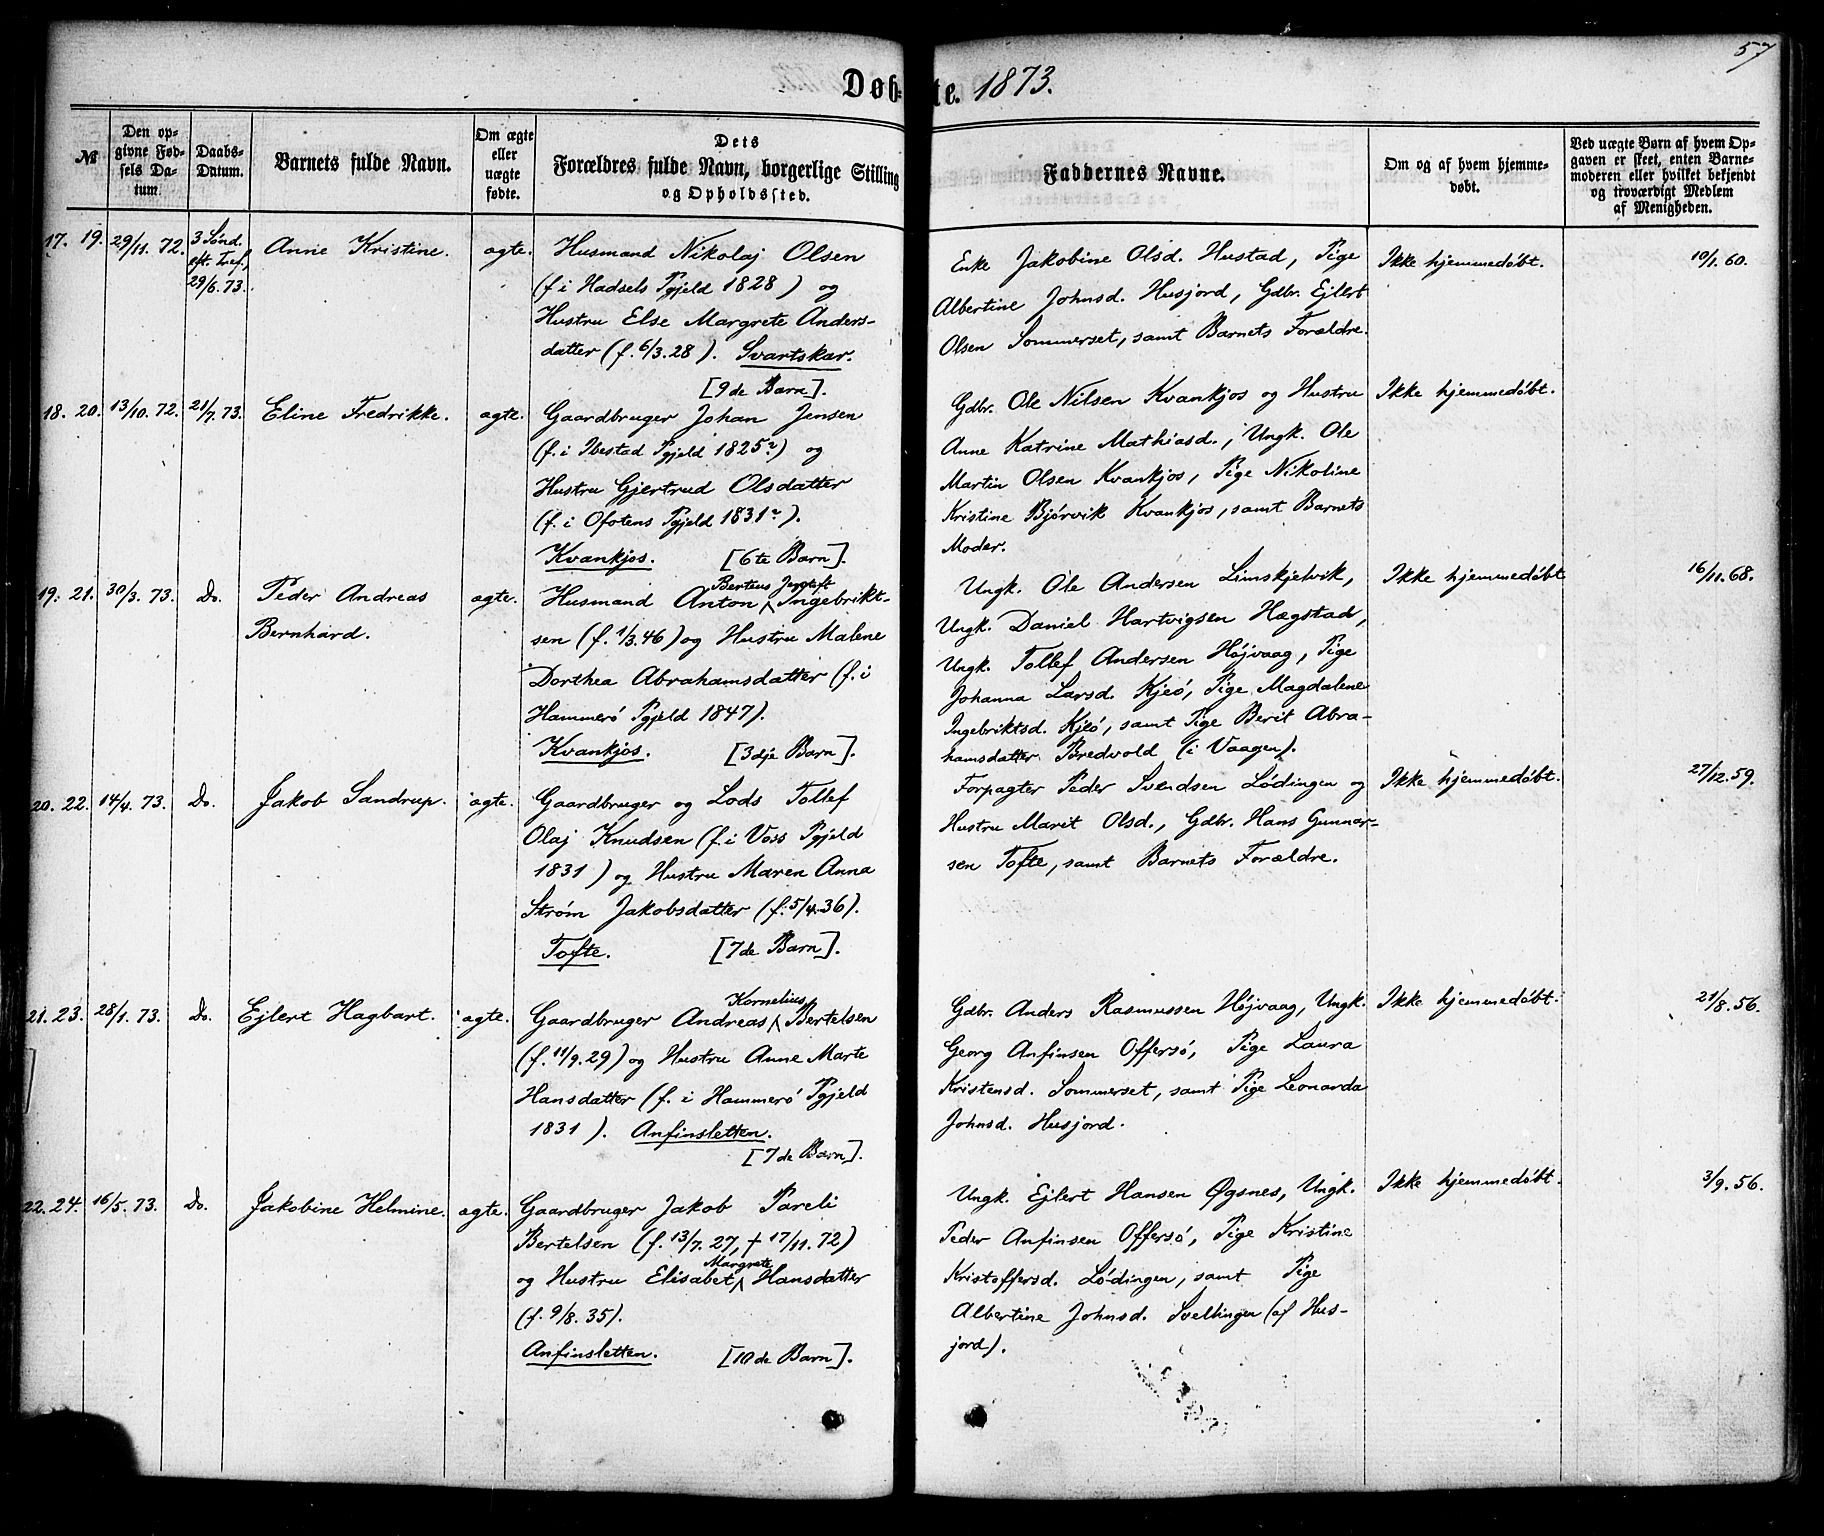 57
Døb-te. 1873.
№
Den op-
givne Fød-
sels Da-
tum.
Daabs-
Datum.
Barnets fulde Navn.
Om ægte
eller
uægte
fødte.
Dets
Forældres fulde Navn, borgerlige Stilling
og Opholdssted.
Faddernes Navne.
Om og af hvem hjemme-
døbt.
Ved uægte Børn af hvem Op-
gaven er skeet, enten Barne-
moderen eller hvilket bekjendt
og troværdigt Medlem
af Menigheden.
17. 19. 29/11. 72.
3 Sönd.
eft. Tref.,
29/6. 73.
Anne Kristine.
ægte.
Husmand Nikolaj Olsen
(f. i Hadsels Pgjeld 1828) og
Hustru Else Margrete Anders-
datter (f. 6/3. 28). Svartskar.
[9de Barn].
Enke Jakobine Olsd. Hustad, Pige
Albertine Johnsd. Husjord, Gdbr. Ejlert
Olsen Sommerset, samt Barnets Forældre.
Ikke hjemmedöbt.
10/1. 60.
18. 20. 13/10. 72. 21/7. 73.
Eline Fredrikke.
ægte.
Gaardbruger Johan Jensen
(f. i Ibestad Pgjeld 1825?) og
Hustru Gjertrud Olsdatter
(f. i Ofotens Pgjeld 1831?).
Kvankjos. [6te Barn].
Gdbr. Ole Nilsen Kvankjos og Hustru
Anne Katrine Mathiasd., Ungk. Ole
Martin Olsen Kvankjos, Pige Nikoline
Kristine Bjórvik Kvankjos, samt Barnets
Moder.
Ikke hjemmedöbt.
19. 21. 30/3. 73. Do.
Peder Andreas
Bernhard.
ægte.
Berteus
Husmand Anton Ingebrikt-
sen (f. 1/3. 46) og Hustru Malene
Dorthea Abrahamsdatter (f. i
Hammerö Pgjeld 1847).
Kvankjos. [3dje Barn].
Ungk. Ole Andersen Limskjelvik,
Ungk. Daniel Hartvigsen Hægstad,
Ungk. Tollef Andersen Höjvaag, Pige
Johanna Larsd. Kjeö, Pige Magdalene
Ingebriktsd. Kjeö, samt Pige Berit Abra-
hamsdatter Bredvold (i Vaagen).
Ikke hjemmedöbt
16/11. 68.
20. 22. 14/4. 73. Do.
Jakob Sandrup.
ægte.
Gaardbruger og Lods Tollef
Olaj Knudsen (f. i Voss Pgjeld
1831) og Hustru Maren Anna
Strøm Jakobsdatter (f. 5/4. 36).
Tofte. [7de Barn].
Forpagter Peder Svendsen Lödingen og
Hustru Marit Olsd., Gdbr. Hans Gunnar-
sen Tofte, samt Barnets Forældre.
Ikke hjemmedöbt.
27/12. 59.
21. 23. 28/1. 73. Do.
Ejlert Hagbart.
ægte.
Kornelius
Gaardbruger Andreas Bertelsen
(f. 11/9. 29) og Hustru Anne Marte
Hansdatter (f. i Hammerö Pgjeld
1831). Anfinsletten.
[7de Barn].
Gdbr. Anders Rasmussen Höjvaag, Ungk.
Georg Anfinsen Offersö, Pige Laura
Kristensd. Sommerset, samt Pige Leonarda
Johnsd. Husjord.
Ikke hjemmedöbt.
21/8. 56.
22. 24. 16/5. 73. Do.
Jakobine Helmine.
ægte.
Gaardbruger Jakob Pareli
Bertelsen (f. 13/7. 27, † 17/11. 72)
Margrete
og Hustru Elisabet Hansdatter
(f. 9/8. 35).
Anfinsletten. [10de Barn].
Ungk. Ejlert Hansen Øgsnes, Ungk.
Peder Anfinsen Offersö, Pige Kristine
Kristoffersd. Lödingen, samt Pige
Albertine Johnsd. Svellingen (af Hus-
jord).
Ikke hjemmedöbt.
3/9. 56.